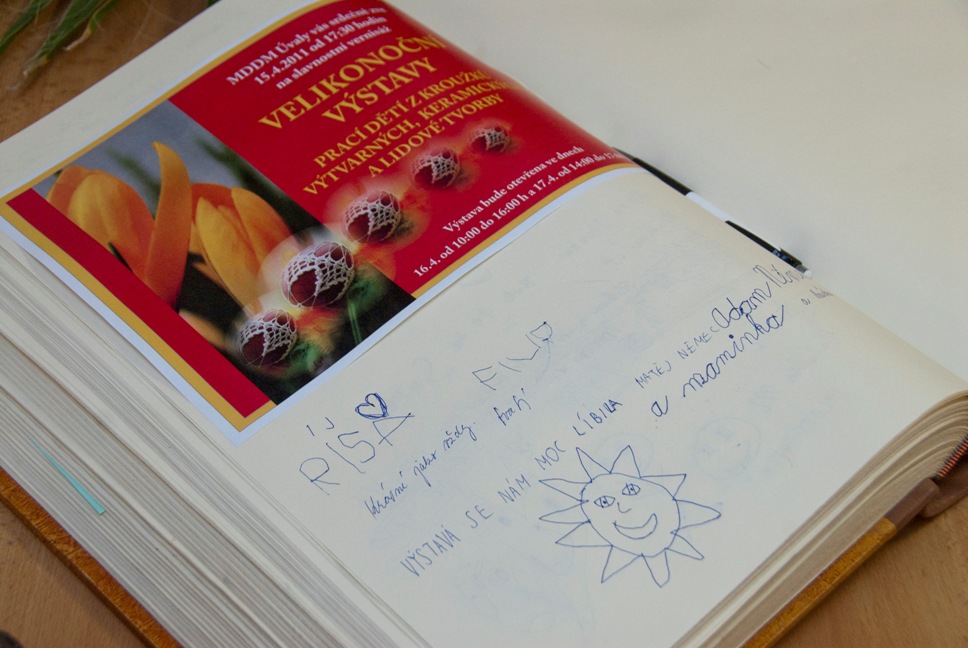 MDDM Úvaly vás srdečně
15.4.2011 od 17:30 hodin
na slavnostní vernisáž
VELIKONOČNÍ
VÝSTAVY
PRACÍ DĚTÍ Z KROUŽKŮ
VÝTVARNÝCH, KERAMICKÝCH
A LIDOVÉ TVORBY
Výstava bude otevřena ve dnech
16.4. od 10:00 do 16:00 h a 17.4. od 14:00 do
RÍŠA
FILIP
Krásné jako vždy.
VÝSTAVA SE NÁM MOC LÍBILA MATĚJ NĚMEC Adam
a maminka